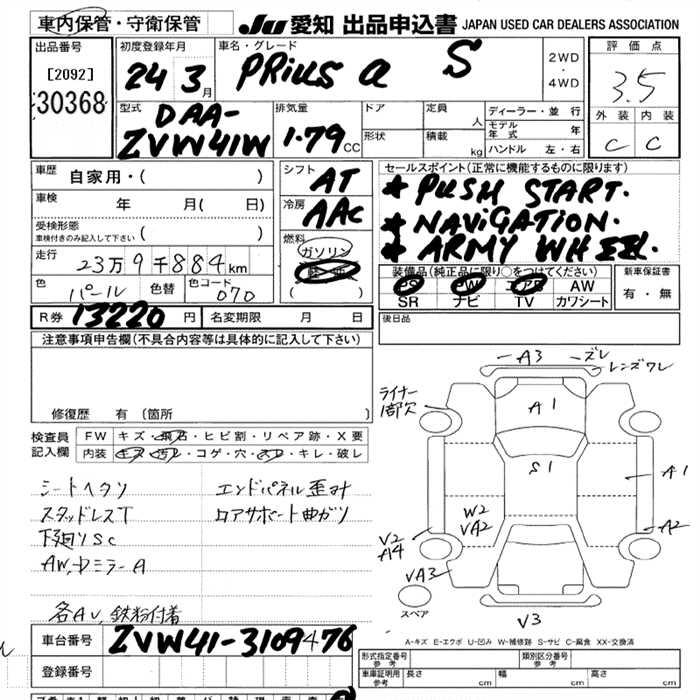 車内保管・守衛保管 JU 愛知 出品申込書 JAPAN USED CAR DEALERS ASSOCIATION
出品番号 初度登録年月 車名・グレード 2WD・4WD 評価点
[2092] 24 3月 PRiUS α S 3.5
30368
型式 排気量 ドア 定員 人 ディーラー・並行 外装 内装
DAA- モデル年式 年
ZVW41W 1.79 CC 形状 積載 kg ハンドル 左・右 C C
車歴 自家用・( ) シフト AT セールスポイント(正常に機能するものに限ります)
車検 年 月( 日) 冷房 AAC ★ PUSH START.
受検形態 ★ NAViGATION.
車検付きのみ記入して下さい ( ) 燃料 ガソリン ★ ARMY WHEEL.
走行 23万9千884km 軽油 装備品(純正品に限り○をつけてください) 新車保証書
色 パール 色替 色コード 070 ( ) PS PW エアB AW 有・無
SR ナビ TV カワシート
R券 13220 円 名変期限 月 日 後日品
注意事項申告欄(不具合内容等は具体的に記入して下さい)
修復歴 有 (箇所 )
検査員 FW キズ・飛石・ヒビ割・リペア跡・X要
記入欄 内装 キズ・汚レ・コゲ・穴・スレ・キレ・破レ
シートヘタリ エンドパネル歪み
スタッドレスT ロアサポート曲ガリ
下廻りSC
AW,DミラーA
各AU,鉄粉付着
A3 ズレ
レンズワレ
ライナー
1部欠
A1
S1
A1
W2
VA2
A2
V2
A14
VA3
スペア
V3
A-キズ E-エクボ U-凹み W-補修跡 S-サビ C-腐食 XX-交換済
車台番号 ZVW41-3109476
登録番号
形式指定番号 参考 類別区分番号 参考
車庫証明用 参考 長さ cm 幅 cm 高さ cm